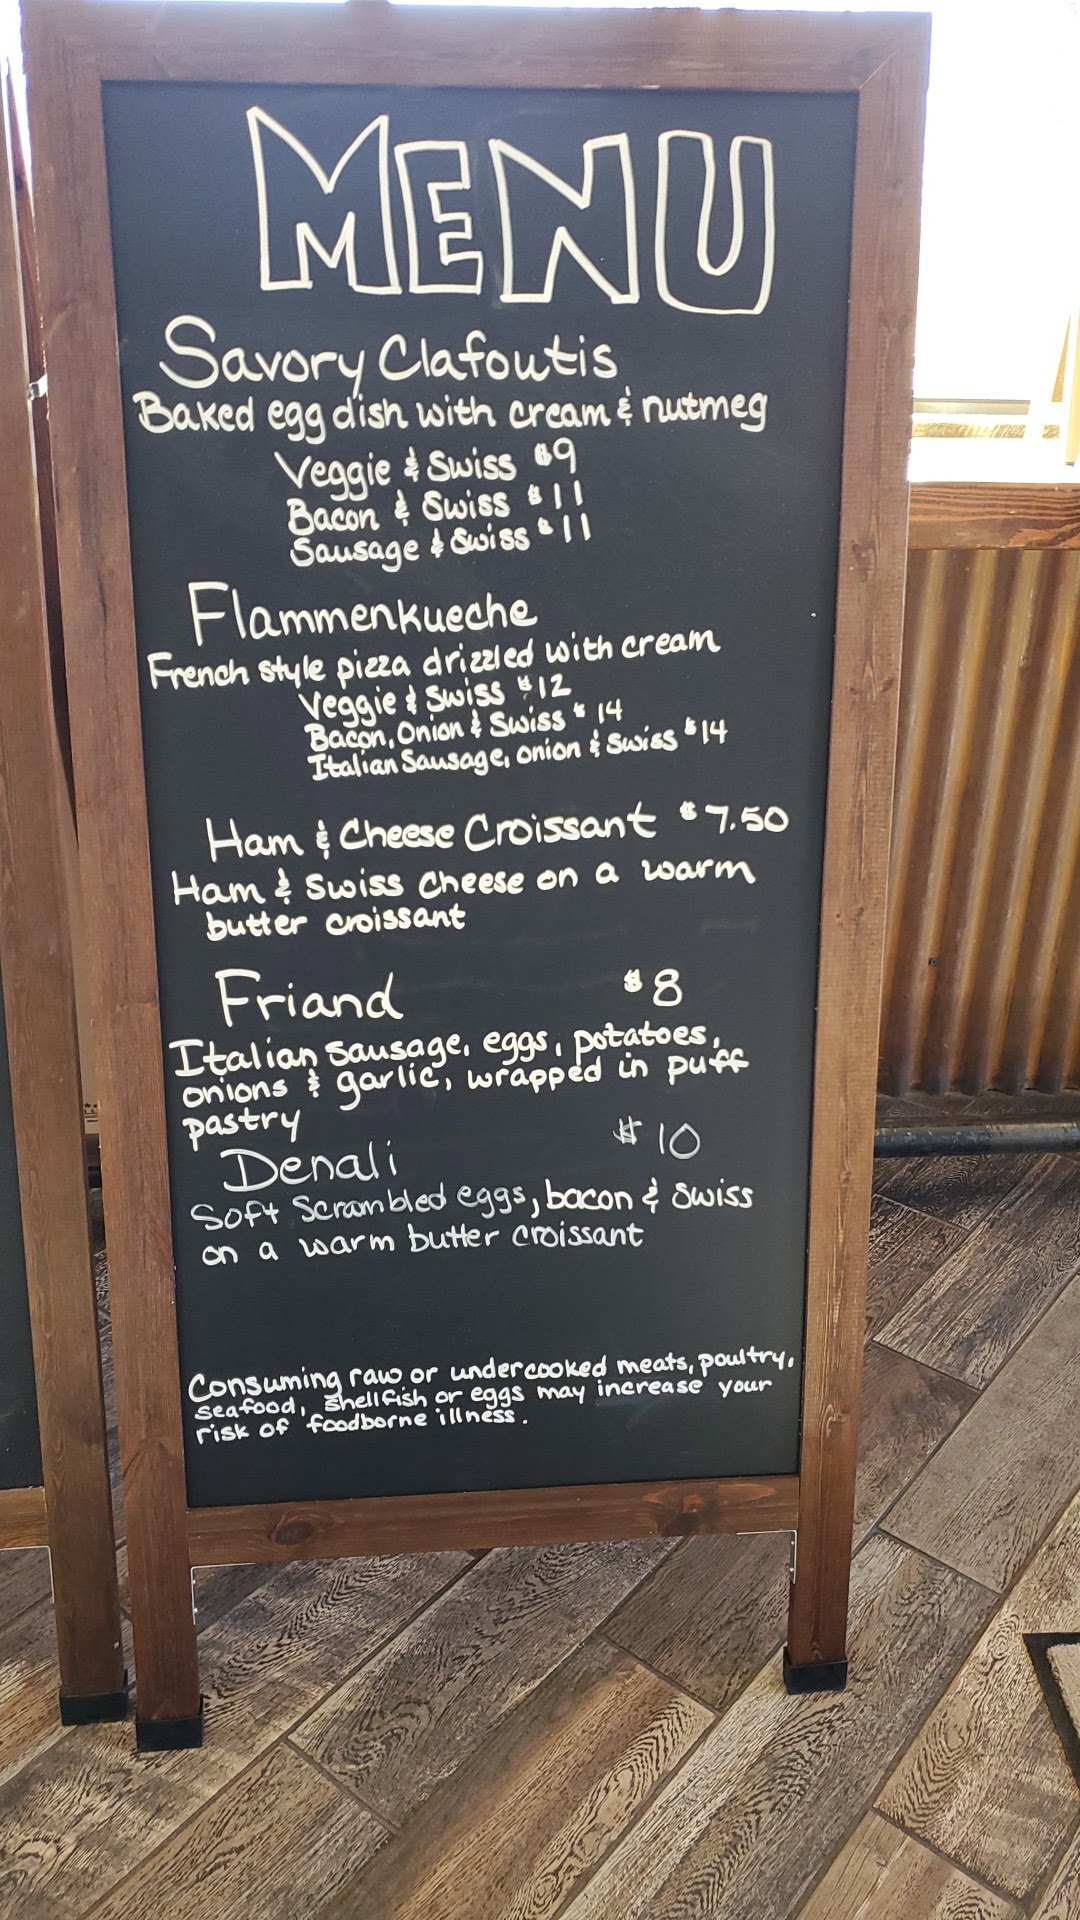 MENU
Savory Clafoutis
Baked egg dish with cream & nutmeg
Veggie & Swiss $9
Bacon & Swiss $11
Sausage & Swiss $11
Flammenkueche
French style pizza drizzled with cream
Veggie & Swiss $12
Bacon, Onion & Swiss $14
Italian Sausage, onion & Swiss $14
Ham & Cheese Croissant $7.50
Ham & Swiss Cheese on a warm
butter croissant
Friand $8
Italian sausage, eggs, potatoes,
onions & garlic, wrapped in puff
pastry
Denali $10
Soft Scrambled eggs, bacon & Swiss
on a warm butter croissant
Consuming raw or undercooked meats, poultry,
seafood, shellfish or eggs may increase your
risk of foodborne illness.